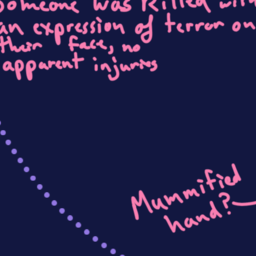 Someone was killed with
an expression of terror on
their face, no
apparent injuries
Mummified
hand?